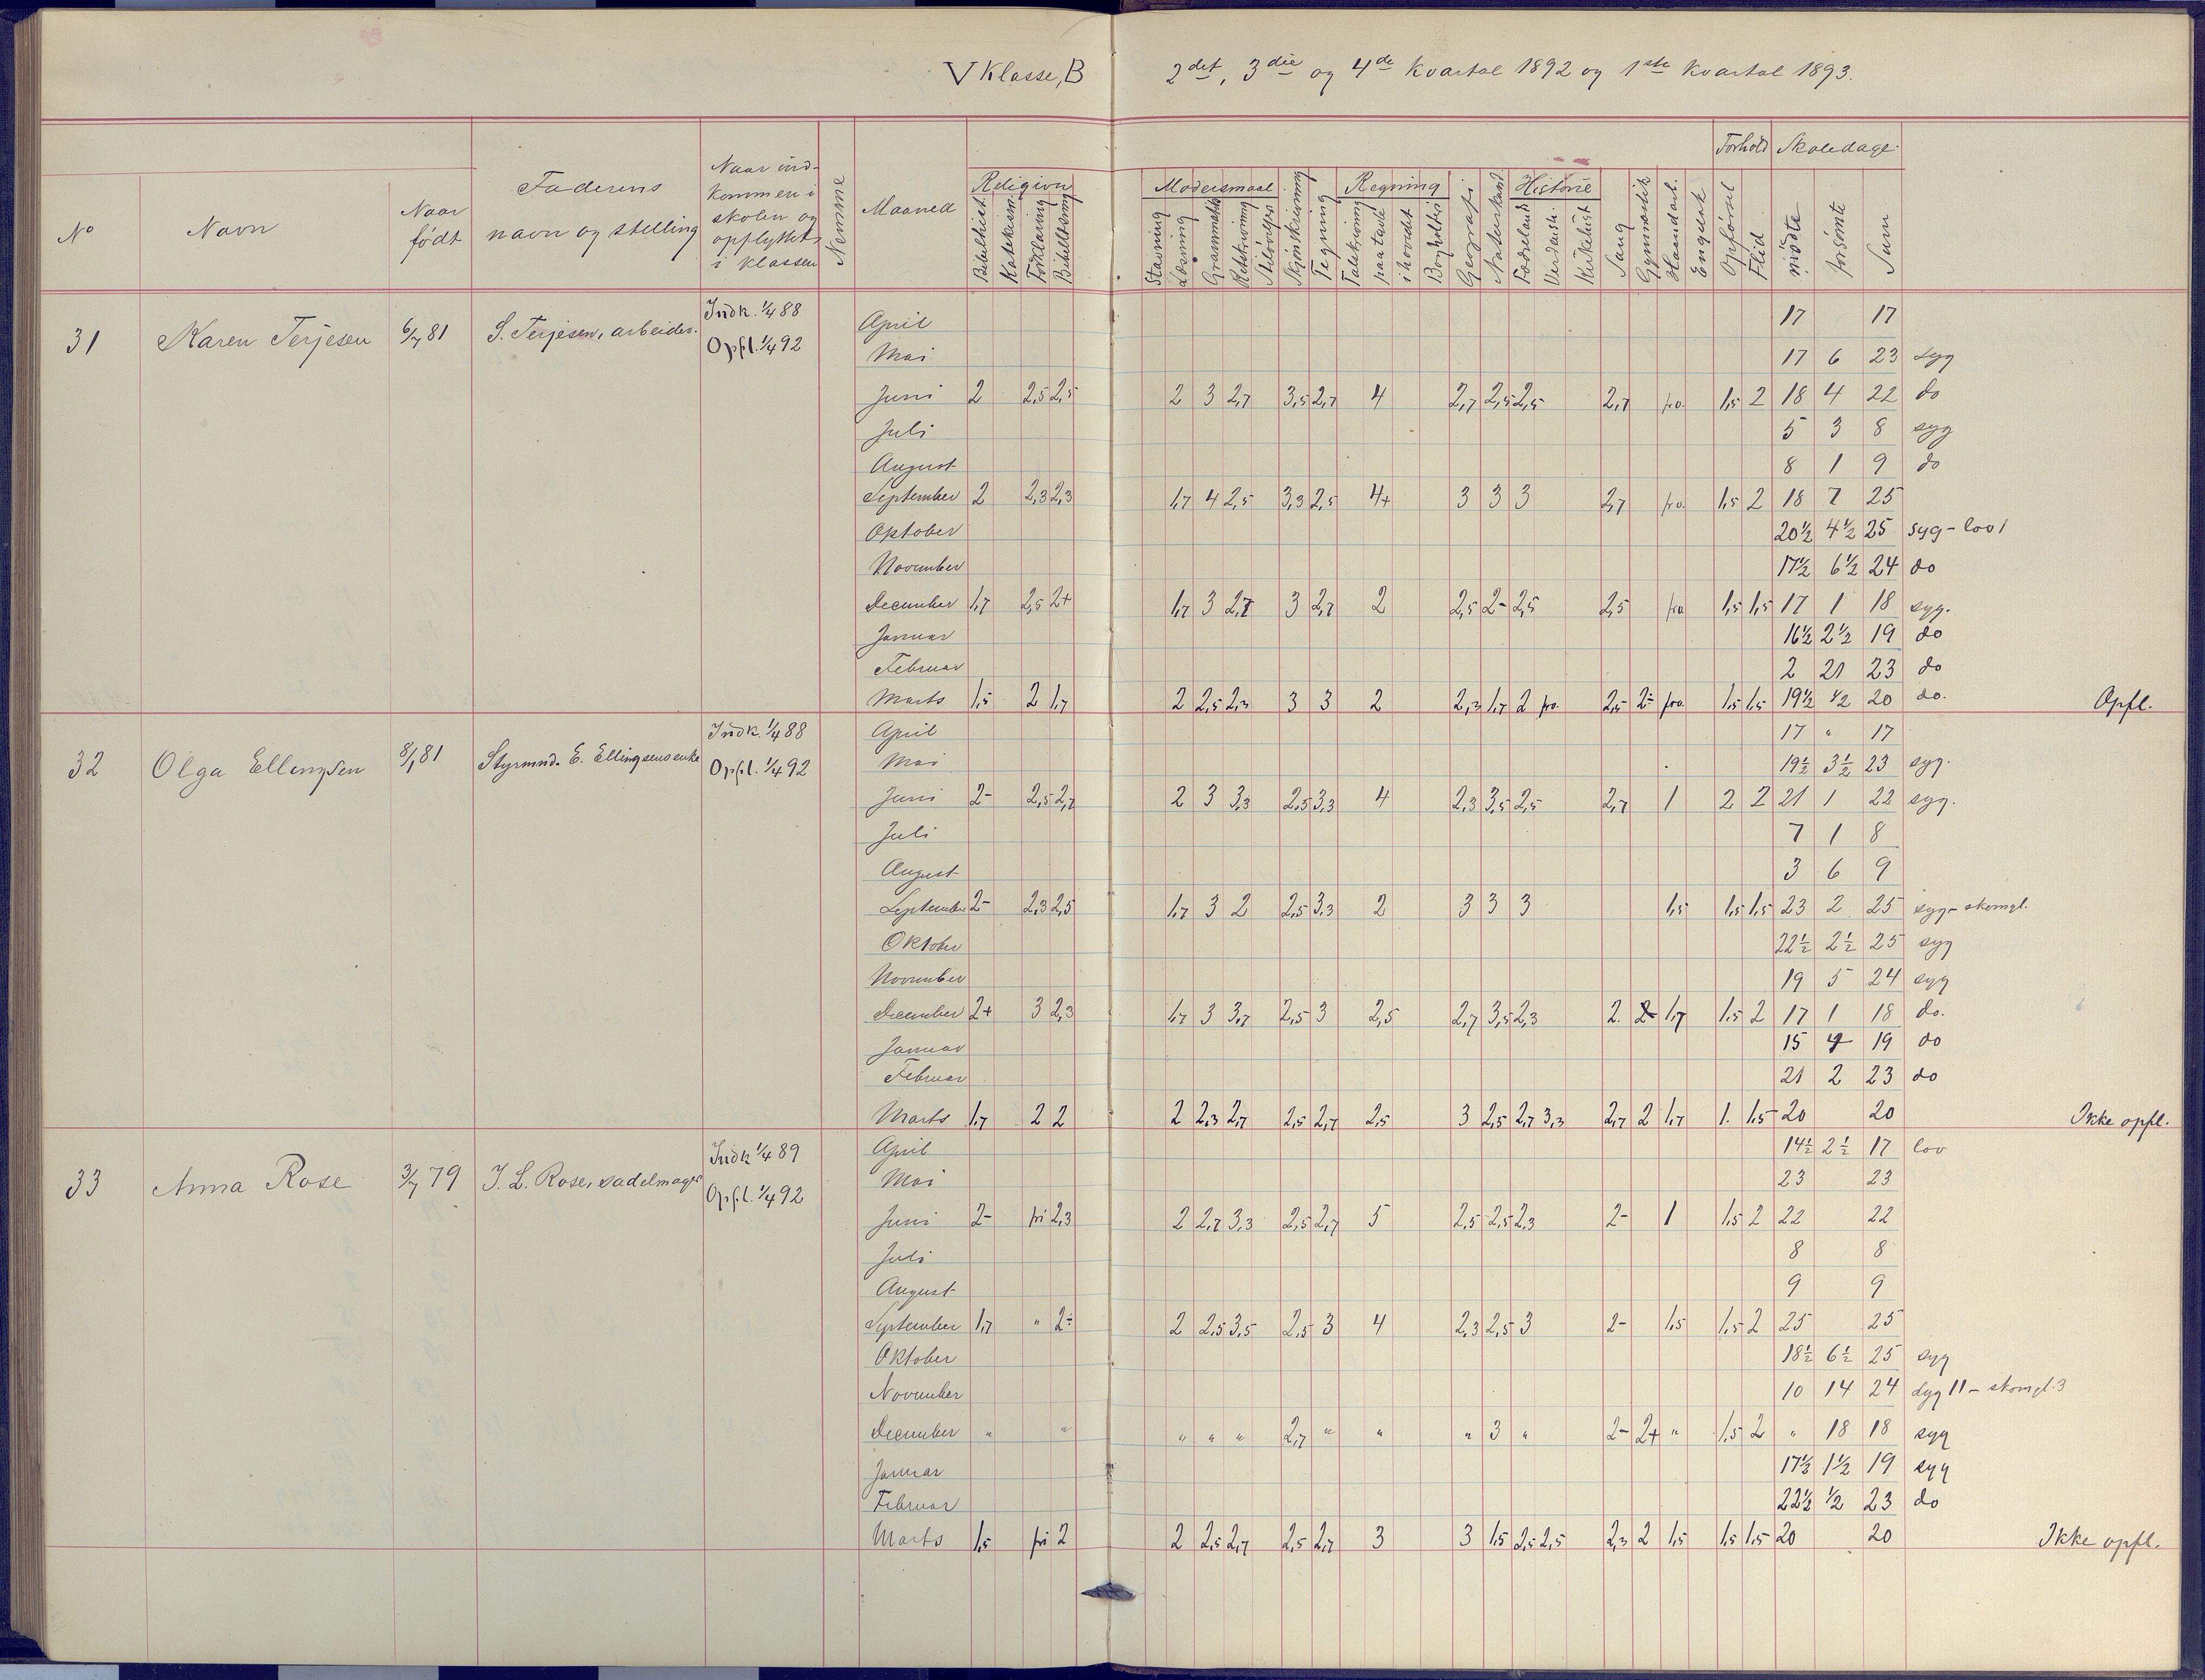 V Klasse, B 2det, 3die og 4de Kvartal 1892 og 1ste Kvartal 1893.
Forhold Skoledage
No Navn Naar født Faderens navn og stelling Naar indkommen i skolen og opflyttet i klassen Nemme Maaned Religion Modersmaal Regning Historie
Bibelhist. Katekism. Forklaring Bibellæsning Stavning Læsning Grammatik Retskrivning Stiløvelser Skjønskrivning Tegning Talskrivning paa tavle i hovedet Bogholderi Geografi Naturkund. Fædreland Verdenshi. Kirkehist. Sang Gymnastik Haandarb. Engelsk Opførsel Flid mødte forsømte Sum
31 Karen Terjesen 6/7 81 S. Terjesen, arbeider. Indk. 1/4 88 Opfl. 1/4 92
April 17 17
Mai 17 6 23 syg
Juni 2 2,5 2,5 2 3 2,7 3,5 2,7 4 2,7 2,5 2,5 2,7 fra. 1,5 2 18 4 22 do
Juli 5 3 8 syg
August 8 1 9 do
September 2 2,3 2,3 1,7 4 2,5 3,3 2,5 4+ 3 3 3 2,7 fra. 1,5 2 18 7 25
Oktober 20½ 4½ 25 syg - lov 1
November 17½ 6½ 24 do
December 1,7 2,5 2+ 1,7 3 2,7 3 2,7 2 2,5 2- 2,5 2,5 fra 1,5 1,5 17 1 18 syg.
Januar 16½ 2½ 19 do
Februar 2 21 23 do
Marts 1,5 2 1,7 2 2,5 2,3 3 3 2 2,3 1,7 2 fra. 2,5 2- fra. 1,5 1,5 19½ ½ 20 do. Opfl.
32 Olga Ellingsen 8/1 81 Styrmnd. E. Ellingsens enke Indk. 1/4 88 Opfl. 1/4 92
April 17 " 17
Mai 19½ 3½ 23 syg.
Juni 2- 2,5 2,7 2 3 3,3 2,5 3,3 4 2,3 3,5 2,5 2,7 1 2 2 21 1 22 syg.
Juli 7 1 8
August 3 6 9
September 2- 2,3 2,5 1,7 3 2 2,5 3,3 2 3 3 3 1,5 1,5 1,5 23 2 25 syg - skomgl.
Oktober 22½ 2½ 25 syg
November 19 5 24 syg
December 2+ 3 2,3 1,7 3 3,7 2,5 3 2,5 2,7 3,5 2,3 2. 2- 1,7 1,5 2 17 1 18 do.
Januar 15 4 19 do
Februar 21 2 23 do
Marts 1,7 2 2 2 2,3 2,7 2,5 2,7 2,5 3 2,5 2,7 3,3 2,7 2 1,7 1. 1,5 20 20 Ikke opfl.
33 Anna Rose 3/7 79 J. L. Rose, sadelmager Indk 1/4 89 Opfl. 1/4 92
April 14½ 2½ 17 lov
Mai 23 23
Juni 2- fri 2,3 2 2,7 3,3 2,5 2,7 5 2,5 2,5 2,3 2- 1 1,5 2 22 22
Juli 8 8
August 9 9
September 1,7 " 2- 2 2,5 3,5 2,5 3 4 2,3 2,5 3 2- 1,5 1,5 2 25 25
Oktober 18½ 6½ 25 syg
November 10 14 24 syg 11 - skomgl. 3
December " " " " " 2,7 " " " 3 " 2- 2+ " 1,5 2 " 18 18 syg
Januar 17½ 1½ 19 syg
Februar 22½ ½ 23 do
Marts 1,5 fri 2 2 2,5 2,7 2,5 2,7 3 3 1,5 2,5 2,5 2,3 2 1,5 1,5 1,5 20 20 Ikke opfl.